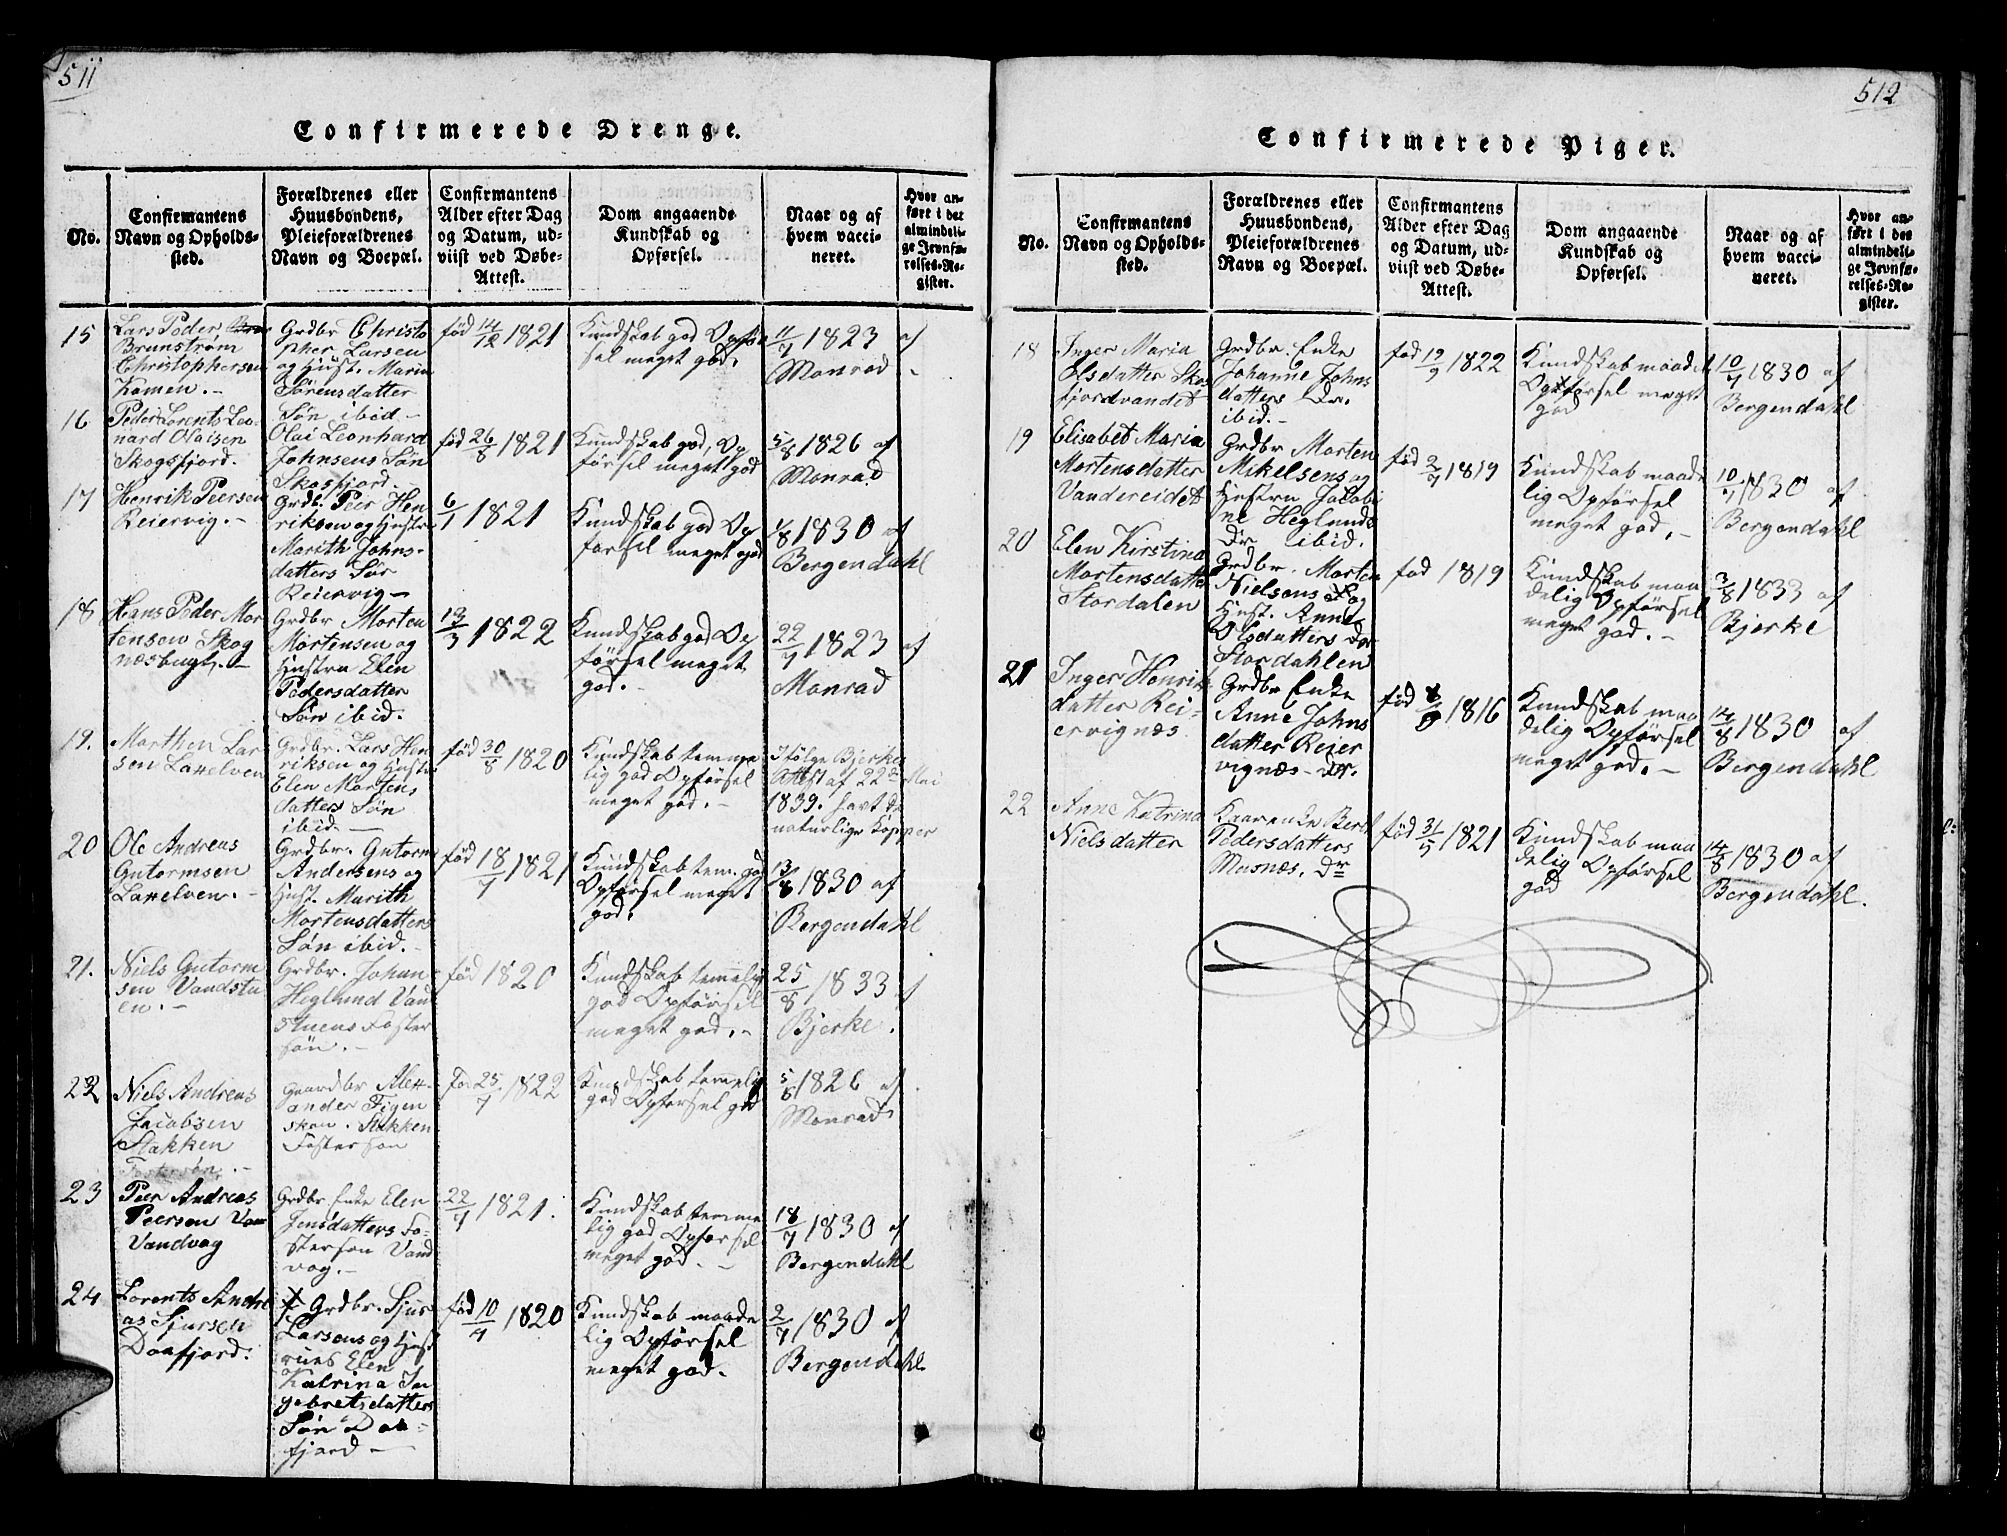 511
Confirmerede Drenge.
No.
Confirmantens
Navn og Opholds-
sted.
Forældrenes eller
Huusbondens,
Pleieforældrenes
Navn og Boepæl.
Confirmantens
Alder efter Dag
og Datum, ud-
viist ved Døbe-
Attest.
Dom angaaende
Kundskab og
Opførsel.
Naar og af
hvem vacci-
neret.
Hvor an-
ført i det
almindeli-
ge Jevnfø-
relses-Re-
gister.
15
Lars Peder
Brunstrøm
Christophersen
Kamen. -
Grdbr Christo
pher Larsen
og Hust. Marin
Sørensdatter
Søn ibid -
fød 14/12 1821
Kundskab god Opfør
sel meget god.
11/7 1823 af
Monrad -
16
Peder Lorents Leo-
nard Olaisen
Skogsfjord.
Olai Leonhard
Johnsens Søn
Skogfjord. -
fød 26/8 1821
Kundskab god, Op
førsel meget god
5/8 1826 af
Monrad
17
Henrik Peersen
Reiervig. -
Grdb. Peer Hen
riksen og Hustr
Marith Johns-
datters Søn
Reiervig -
6/1 1821
Kundskab god Op
førsel meget god
1/8 1830 af
Bergendahl
18
Hans Peder Mor
tensen Skog
næsbugt. -
Grdbr Morten
Mortensen og
Hustru Elen
Pedersdatter
Søn ibid.
13/3 1822
Kundskab god Op
førsel meget
god. -
22/7 1823 af
Monrad
19.
Morthen Lar
sen Laxelven
Grdbr. Lars Hen
riksen og Hustr
Elen Mortens
datters Søn
ibid. -
fød 30/8 1820
Kundskab temme
lig god Opførsel
meget god. -
Ifølge Bjerkes
Attest af 22de Mai
1839. havt de
naturlige Kopper
20
Ole Andreas
Gutormsen
Laxelven. -
Grdbr. Gutorm
Andersens og
Hust. Marith
Mortensdatters
Søn ibid. -
fød 18/7 1821
Kundskab tem. god
Opførsel meget
god.
13/8 1830 af
Bergendahl
21.
Niels Gutorm
sen Vandstu
en. -
Grdbr. Johan
Heglund Van
stuens Foster
søn. -
fød 1820
Kundskab temelig
god Opførsel
meget god. -
25/8 1833 af
Bjerke.
22
Niels Andreas
Jacobsen
Stakken
Fostersøn. -
Gaardbr Alex-
ander Figen
skau. Stakken
Fostersøn
Fød 25/7 1822
Kundskab temelig
god Opførsel god
5/8 1826 af
Monrad
23
Peer Andreas
Peersen
Vandvag
Grdbr Enke Elen
Jensdatters Fo-
stersøn Vand
vag. -
22/4 1821.
Kundskab temme
lig god Opførsel
meget god. -
18/7 1830 af
Bergendahl
24
Lorents Andre
as Sjursen
Daafjord.
Grdbr. Sjur
Larsens og Hust
rues Elen
Katrina In
gebretsdatters
Søn Daa-
fjord -
fød 10/4 1820
Kundskab maade
lig Opførsel
meget god.
2/7 1830 af
Bergendahl
512
Confirmerede Piger.
No.
Confirmantens
Navn og Opholds-
sted.
Forældrenes eller
Huusbondens,
Pleieforældrenes
Navn og Boepæl.
Confirmantens
Alder efter Dag
og Datum, ud-
viist ved Døbe-
Attest.
Dom angaaende
Kundskab og
Opførsel.
Naar og af
hvem vacci-
neret.
Hvor an-
ført i det
almindeli-
ge Jevnfø-
relses-Re-
gister.
18
Inger Maria
Olsdatter Skog
fjordvandet
Grdbr. Enke
Johanne Johns
datters Dr.
ibid. -
fød 12/9 1822
Kundskab maadel
Opførsel meget
god
10/7 1830 af
Bergendahl
19
Elisabet Maria
Mortensdatter
Vandereidet
Grdbr Morten
Mikelsens og
Hustru Jacobi
ne Heglunds
Dr ibid.
fød 2/7 1819
Kundskab maade
lig Opførsel
meget god. -
10/7 1830 af
Bergendahl
20
Elen Kirstina
Mortensdatter
Stordalen
Grdbr. Morten
Nielsens og
Hust. Anne
Olsdatters Dr
Stordahlen
fød 1819
Kundskab maa
delig Opførsel
meget god. -
3/8 1833 af
Bjerke
21
Inger Henrik
datter Rei-
ervignæs
Grdbr Enke
Anne Johns
datter Reier
vignæs - Dr.
fød 8/9 1816
Kundskab maa
delig Opførsel
meget god. -
14/8 1830 af
Bergendahl
22
Anne Katrina
Nielsdatter
Kaarenke Berit
Pedersdatters
Musnæs. Dr
fød 31/5 1821
Kundskab maa
delig Opførsel
god
14/8 1830 af
Bergendahl.